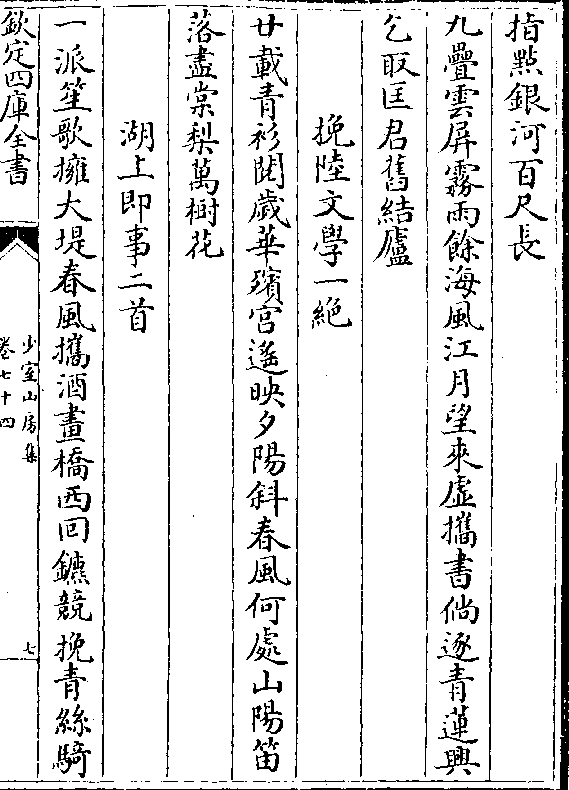 指㸃銀河百尺長
九疊雲屏霧雨餘海風江月望來虛攜書倘逐青蓮興
乞取匡君舊結廬
挽陸文學一絶
廿載青衫閱歲華殯宫遙映夕陽斜春風何處山陽笛
落盡棠梨萬樹花
湖上即事二首
一派笙歌擁大堤春風攜酒畫橋西回鑣競挽青絲騎
欽定四庫全書
少室山房集
卷七十四
七